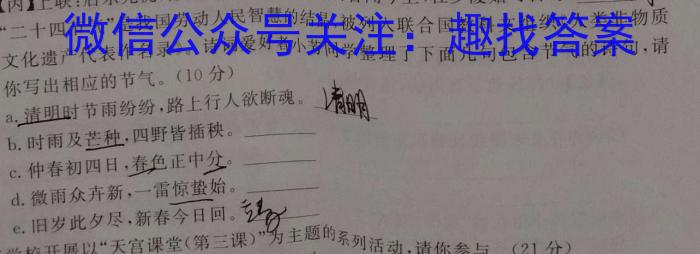 【丙】上联：
"二十四 我国劳动人民智慧的结 被列 联合国 类非物质
微信公众号关注：趣找答案
文化遗产代表作名录 诗词爱好者小 同学整理了下面几句包含节气的诗句，请
你写出相应的节气。（10分）
a. 清明时节雨纷纷，路上行人欲断魂。 清明
b. 时雨及芒种，四野皆插秧。
c. 仲春初四日，春色正中分。
d. 微雨众卉新，一雷惊蛰始。
e. 旧岁此夕尽，新春今日回。
学校开展以"天宫课堂（第三课）"为主题的系列活动，请你参与。（21分）